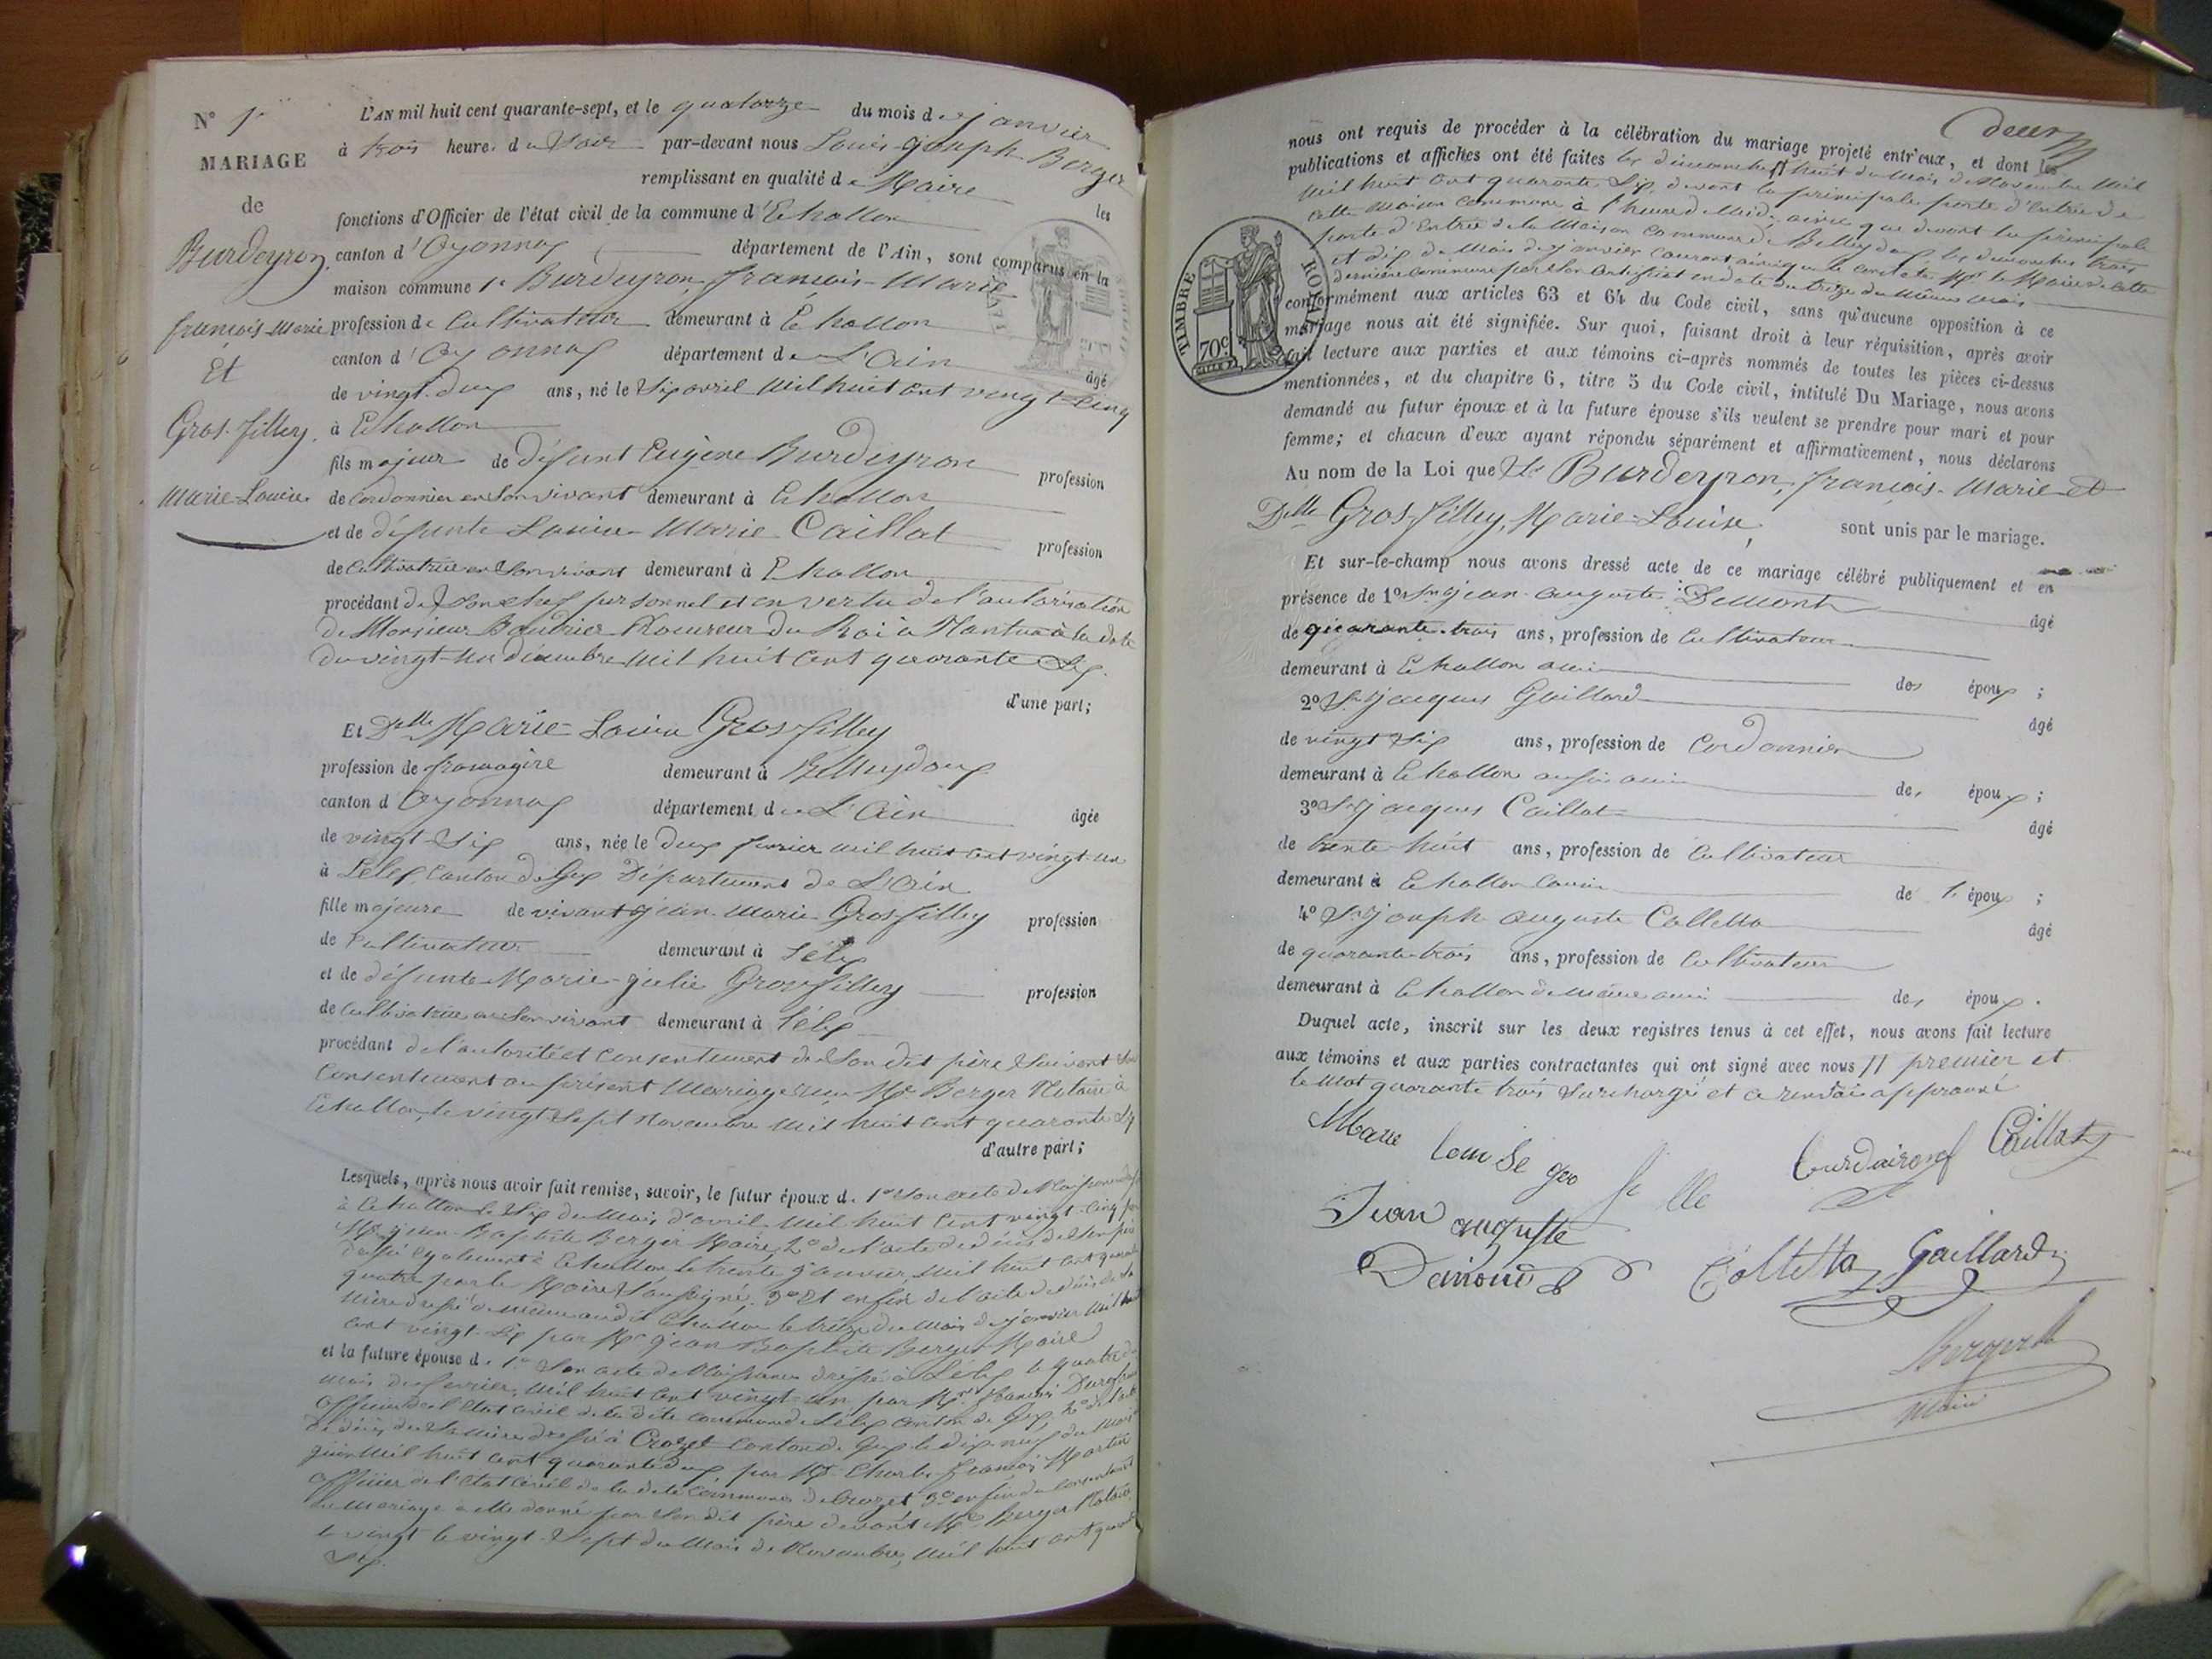 N° 1er
MARIAGE
de
Burdeyron,
françois-Marie
Et
Gros-filley,
Marie-Louise
L'AN mil huit cent quarante-sept, et le quatorze du mois de janvier
à trois heures du Soir par-devant nous Louis-Joseph Berger
remplissant en qualité de Maire les
fonctions d'Officier de l'état civil de la commune d'Echallon
canton d'Oyonnax département de l'Ain, sont comparus en la
maison commune 1° Burdeyron françois-Marie
profession de Cultivateur demeurant à Echallon
canton d'Oyonnax département de L'Ain âgé
de vingt-deux ans, né le Six avril Mil huit cent vingt Cinq
à Echallon
fils majeur de défunt Eugène Burdeyron profession
de cordonnier en Son vivant demeurant à Echallon
et de défunte Louise-Marie Caillat profession
de Cultivatrice en Son vivant demeurant à Echallon
procédant de Son chef personnel et en vertu de l'autorisation
de Monsieur Procureur du Roi à Nantua à la date
du vingt-un décembre Mil huit Cent quarante Six.
d'une part;
Et Delle Marie-Louise Gros-filley
profession de fromagère demeurant à Belleydoux
canton d'Oyonnax département de L'Ain âgée
de vingt-Six ans, née le deux février mil huit cent vingt-un
à Lélex, Canton de Gex Département de L'Ain
fille majeure de vivant jean-Marie Gros-filley profession
de Cultivateur demeurant à Lélex
et de défunte Marie-julie Grosfilley profession
de Cultivatrice en Son vivant demeurant à Lélex
procédant de l'autorité et Consentement de Son dit père Suivant Son
Consentement au présent Mariage reçu Me Berger Notaire à
Echallon, le vingt-Sept Novembre Mil huit Cent quarante Six
d'autre part;
Lesquels, après nous avoir fait remise, savoir, le futur époux de 1° Son acte de Naissance
à Echallon le Six du Mois d'avril Mil huit Cent vingt-Cinq
Mr jean-Baptiste Berger Maire, 2° de l'acte de décès de Son père
dressé également à Echallon le trente janvier, Mil huit cent quarante
quatre par le Maire Soussigné. 3° Et enfin de l'acte de décès de Sa
Mère dressé de même audit Echallon le treize du Mois de janvier Mil huit
cent vingt-Six par Mr jean Baptiste Berger Maire
et la future épouse de 1° Son acte de Naissance dressé à Lélex le quatre du
Mois de février, Mil huit Cent vingt-un par Mr françois
officier de l'état Civil de la dite commune de Lélex canton de Gex, 2° de l'acte
de décès de Sa Mère dressé à Crozet Canton de Gex le dix-neuf du Mois
juin Mil huit Cent quarante-deux par Mr Charles françois Martin
officier de l'état Civil de la dite Commune de Crozet, 3° enfin du Consentement
du Mariage à elle donné par Son dit père devant Me Berger Notaire
le vingt le vingt-Sept du Mois de Novembre, Mil huit cent quarante
Six.
deux
nous ont requis de procéder à la célébration du mariage projeté entr'eux, et dont les
publications et affiches ont été faites les dimanches huit du Mois de Novembre Mil
Mil huit Cent quarante Six, devant la principale porte d'entrée de
cette Maison Commune à l'heure de Midi, ainsi que devant la principale
porte d'Entrée de la Maison Commune de Belleydoux les dimanches trois
et dix du Mois de janvier Courant ainsi que le constate Mr le Maire de cette
dernière Commune par Son Certificat en date du treize du Même Mois
TIMBRE ROYAL
70c
conformément aux articles 63 et 64 du Code civil, sans qu'aucune opposition à ce
mariage nous ait été signifiée. Sur quoi, faisant droit à leur réquisition, après avoir
fait lecture aux parties et aux témoins ci-après nommés de toutes les pièces ci-dessus
mentionnées, et du chapitre 6, titre 5 du Code civil, intitulé Du Mariage, nous avons
demandé au futur époux et à la future épouse s'ils veulent se prendre pour mari et pour
femme; et chacun d'eux ayant répondu séparément et affirmativement, nous déclarons
Au nom de la Loi que Sr Burdeyron, françois-Marie et
Delle Gros-filley, Marie-Louise, sont unis par le mariage.
Et sur-le-champ nous avons dressé acte de ce mariage célébré publiquement et en
présence de 1° Sr jean-auguste Demont âgé
de quarante-trois ans, profession de Cultivateur
demeurant à Echallon ami des époux ;
2° Sr jacques Gaillard âgé
de vingt Six ans, profession de Cordonnier
demeurant à Echallon aussi ami des époux ;
3° Sr jacques Caillat âgé
de trente-huit ans, profession de Cultivateur
demeurant à Echallon Cousin de l'époux ;
4° Sr joseph auguste Colletta âgé
de quarante-trois ans, profession de Cultivateur
demeurant à Echallon de même ami des époux.
Duquel acte, inscrit sur les deux registres tenus à cet effet, nous avons fait lecture
aux témoins et aux parties contractantes qui ont signé avec nous // premier et
le Mot quarante trois Surchargé et ce renvoi approuvé
Marie louise gro fi lle burdairon Caillat
Jean auguste
Demond Colletta Gaillard
Berger
Maire